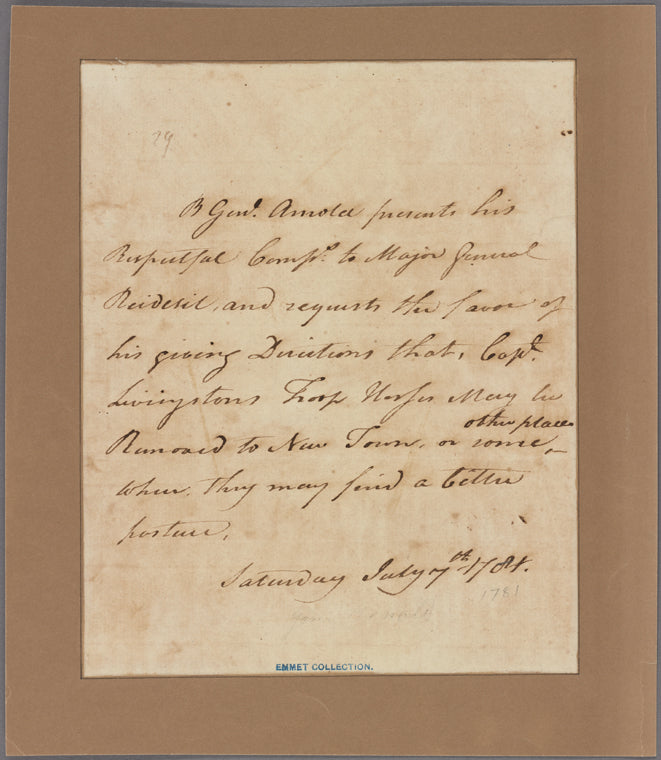 29
B Genl. Arnold presents his
Respectful Compts. to Major General
Reidesel, and requests the favor of
his giving Directions that, Capt.
Livingstons Troop Horses May be
other places
Removed to New Town, or some,
where, they may find a bettre
pasture,
Saturday July 7th 1781.
1781
EMMET COLLECTION.